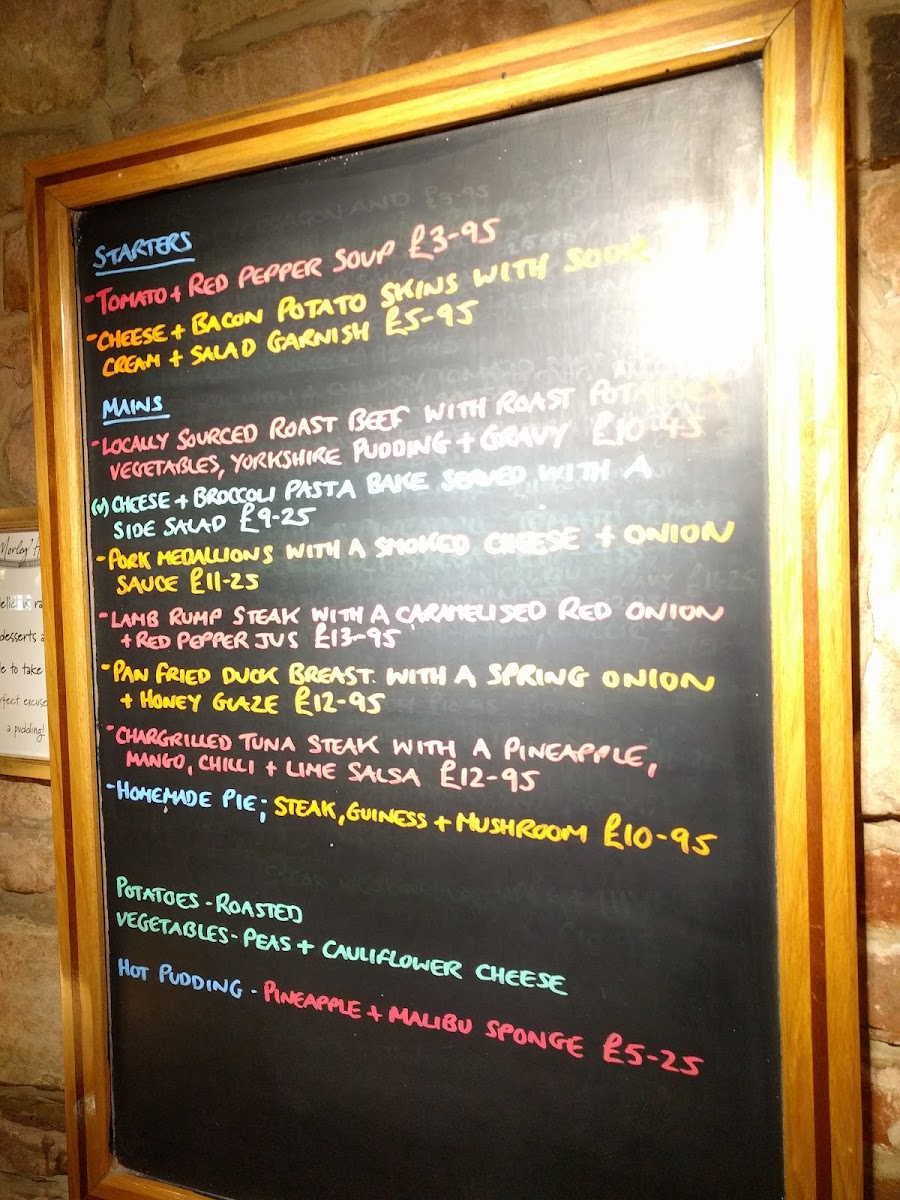 STARTERS
-TOMATO + RED PEPPER SOUP £3-95
-CHEESE + BACON POTATO SKINS WITH SOUR
CREAM + SALAD GARNISH £5-95
MAINS
-LOCALLY SOURCED ROAST BEEF WITH ROAST POTATOES,
VEGETABLES, YORKSHIRE PUDDING + GRAVY £10-45
(V) CHEESE + BROCCOLI PASTA BAKE SERVED WITH A
SIDE SALAD £9-25
-PORK MEDALLIONS WITH A SMOKED CHEESE + ONION
SAUCE £11-25
-LAMB RUMP STEAK WITH A CARAMELISED RED ONION
+ RED PEPPER JUS £13-95
-PAN FRIED DUCK BREAST WITH A SPRING ONION
+ HONEY GLAZE £12-95
-CHARGRILLED TUNA STEAK WITH A PINEAPPLE,
MANGO, CHILLI + LIME SALSA £12-95
-HOMEMADE PIE; STEAK, GUINESS + MUSHROOM £10-95
POTATOES - ROASTED
VEGETABLES - PEAS + CAULIFLOWER CHEESE
HOT PUDDING - PINEAPPLE + MALIBU SPONGE £5-25
desserts
to take
excuse
a pudding!